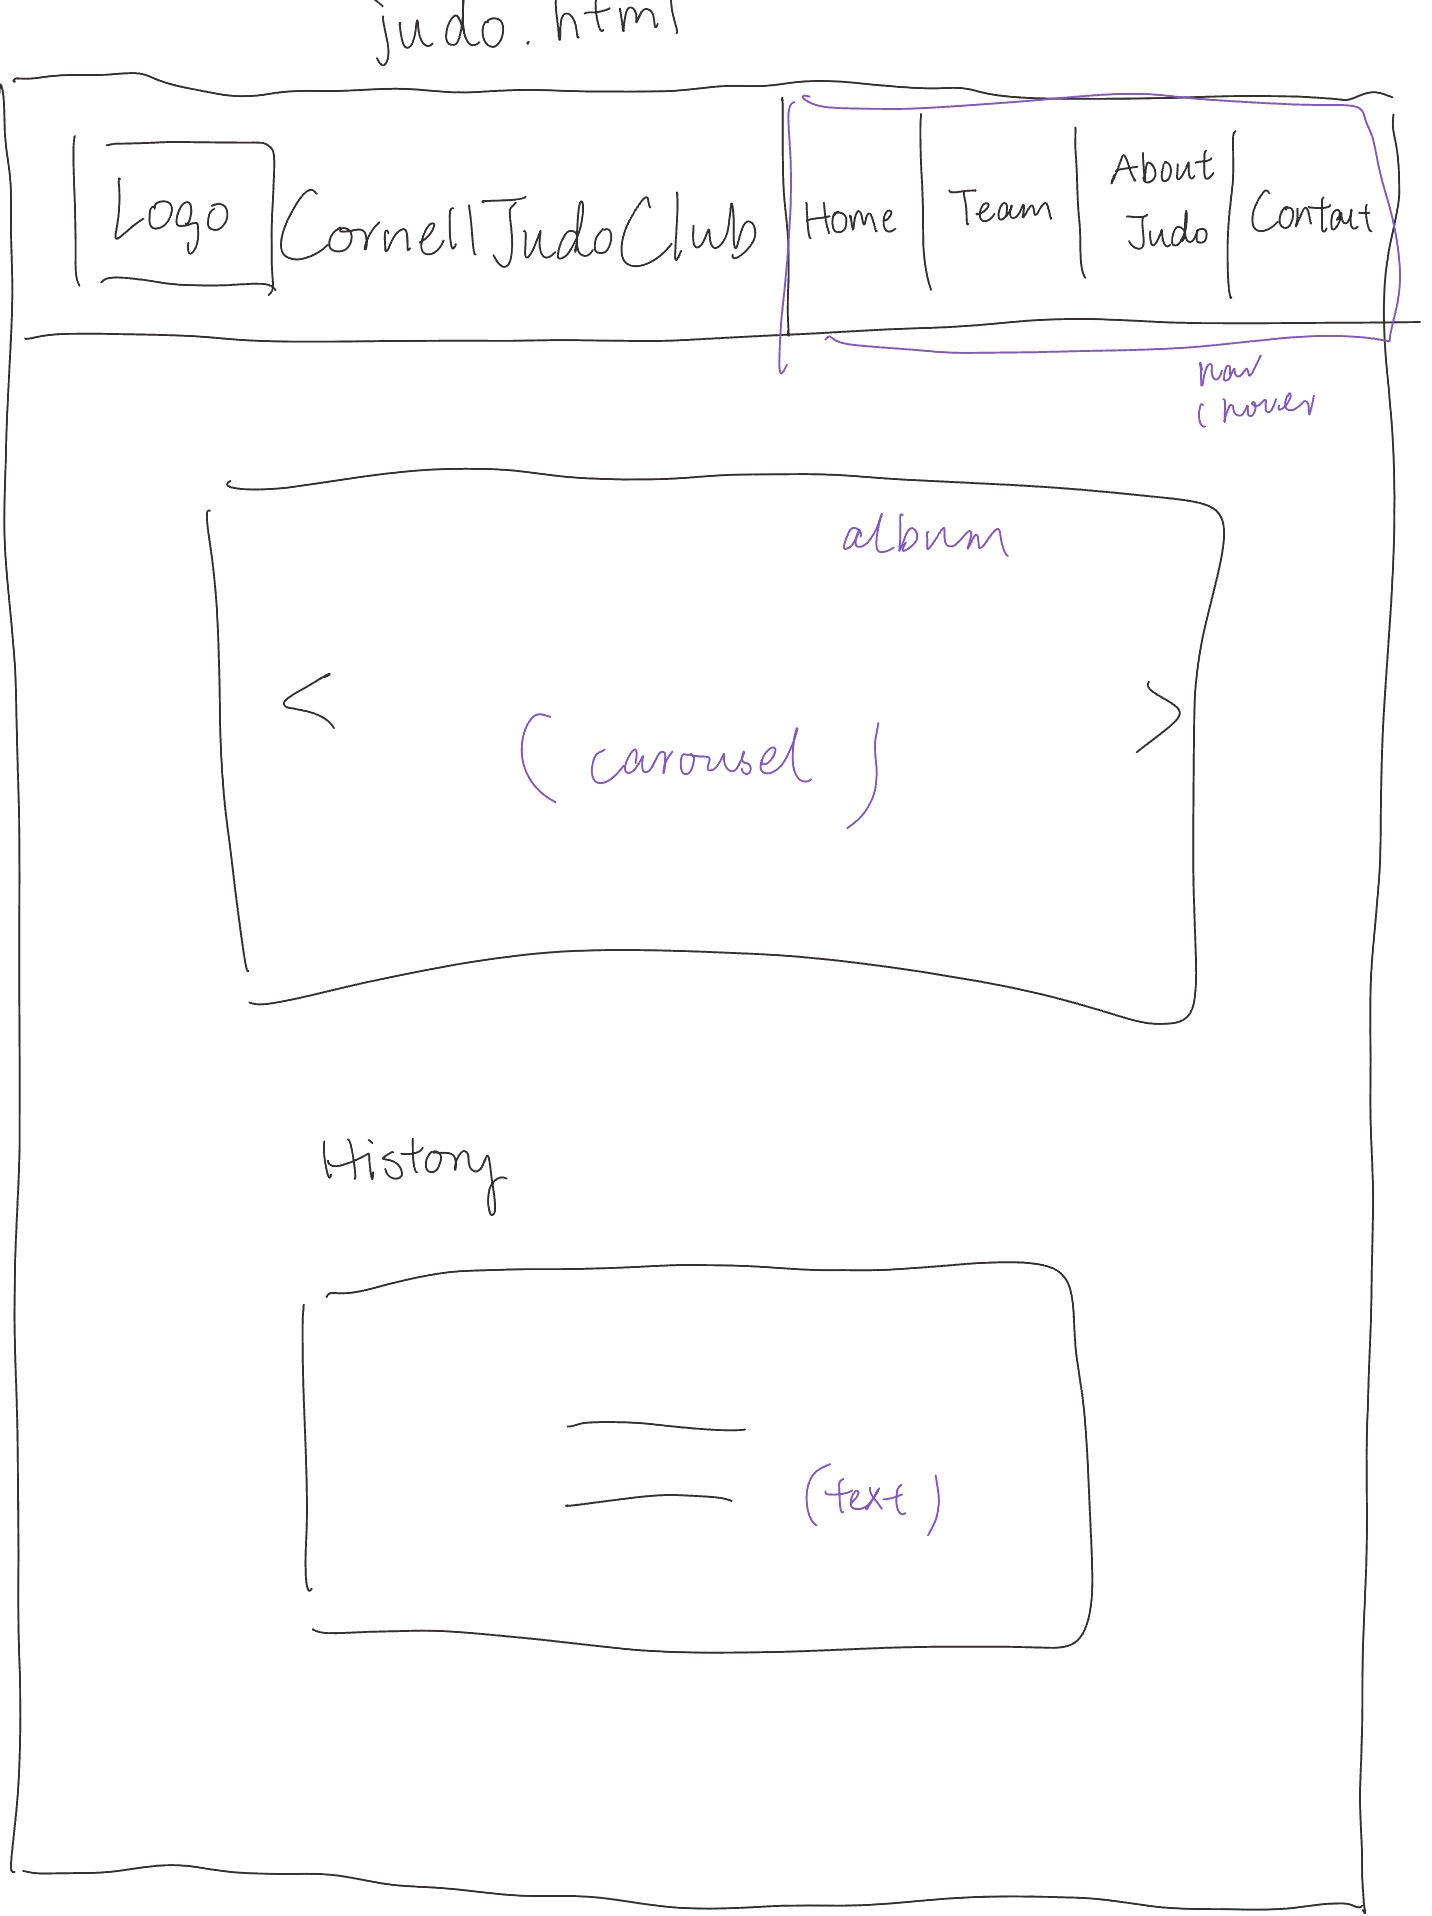 judo.html
Logo
CornellJudoClub
Home
Team
About
Judo
Contact
nav
( hover
album
<
( carousel )
>
History
(text)